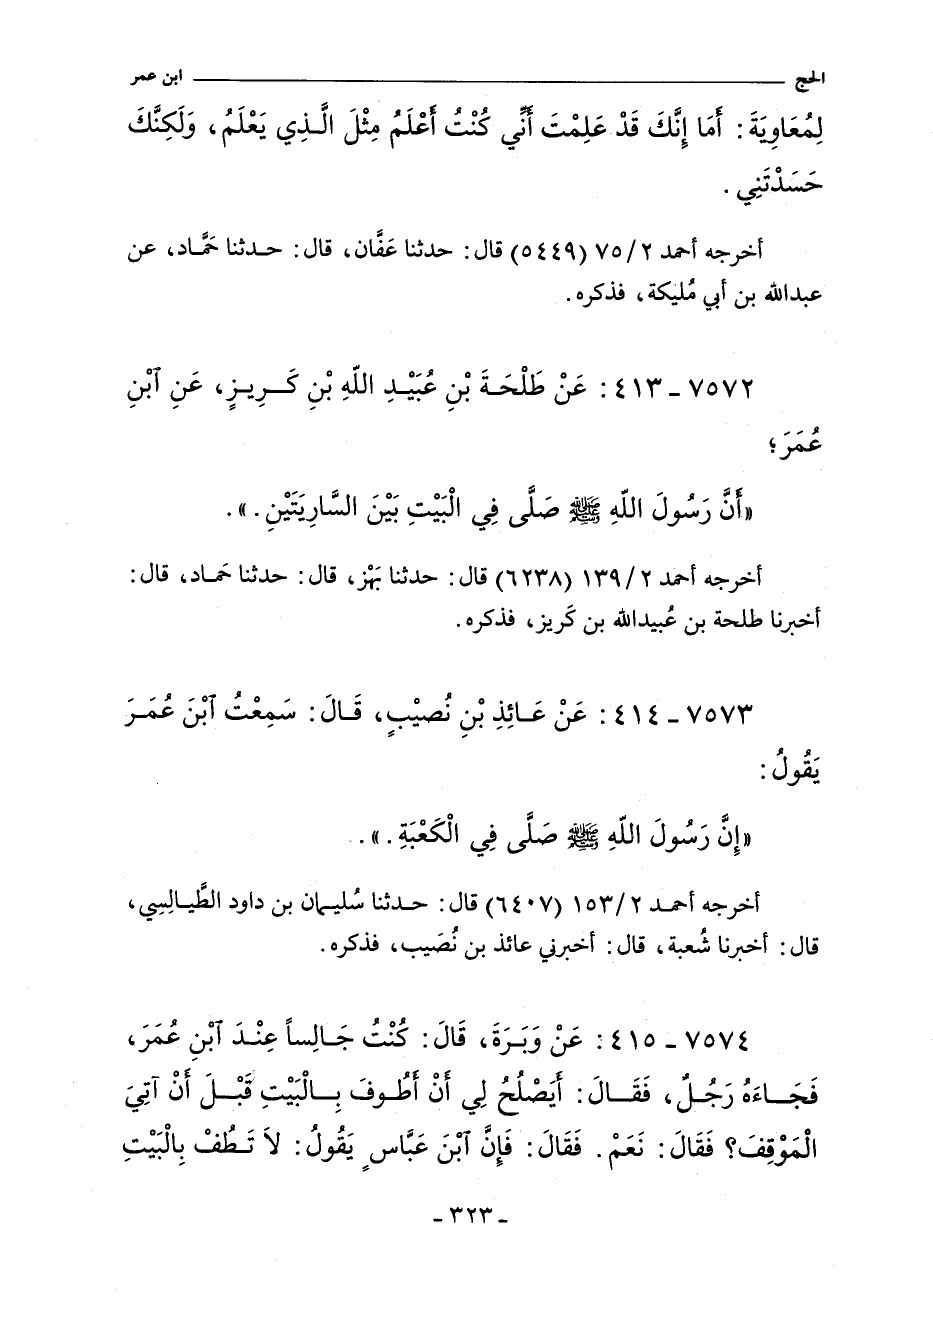 الحج ابن عمر
لِمُعَاوِيَةَ: أَمَا إِنَّكَ قَدْ عَلِمْتَ أَنِّي كُنْتُ أَعْلَمُ مِثْلَ الَّذِي يَعْلَمُ، وَلَكِنَّكَ
حَسَدْتَنِي.
أخرجه أحمد ٢/ ٧٥ (٥٤٤٩) قال: حدثنا عَفَّان، قال: حدثنا حَمَّاد، عن
عبدالله بن أبي مُليكة، فذكره.
٧٥٧٢ - ٤١٣: عَنْ طَلْحَةَ بْنِ عُبَيْدِ اللّهِ بْنِ كَرِيزٍ، عَنِ ٱبْنِ
عُمَرَ؛
«أَنَّ رَسُولَ اللّهِ ﷺ صَلَّى فِي الْبَيْتِ بَيْنَ السَّارِيَتَيْنِ.».
أخرجه أحمد ٢/ ١٣٩ (٦٢٣٨) قال: حدثنا بَهْز، قال: حدثنا حَماد، قال:
أخبرنا طلحة بن عُبيدالله بن كَريز، فذكره.
٧٥٧٣ - ٤١٤: عَنْ عَائِذِ بْنِ نُصَيْبٍ، قَالَ: سَمِعْتُ ٱبْنَ عُمَرَ
يَقُولُ:
«إِنَّ رَسُولَ اللّهِ ﷺ صَلَّى فِي الْكَعْبَةِ.».
أخرجه أحمد ٢/ ١٥٣ (٦٤٠٧) قال: حدثنا سُليمان بن داود الطَّيالِسِي،
قال: أخبرنا شُعبة، قال: أخبرني عائذ بن نُصَيب، فذكره.
٧٥٧٤ - ٤١٥: عَنْ وَبَرَةَ، قَالَ: كُنْتُ جَالِساً عِنْدَ ٱبْنِ عُمَرَ،
فَجَاءَهُ رَجُلٌ، فَقَالَ: أَيَصْلُحُ لِي أَنْ أَطُوفَ بِالْبَيْتِ قَبْلَ أَنْ آتِيَ
الْمَوْقِفَ؟ فَقَالَ: نَعَمْ. فَقَالَ: فَإِنَّ ٱبْنَ عَبَّاسٍ يَقُولُ: لاَ تَطُفْ بِالْبَيْتِ
- ٣٢٣ -